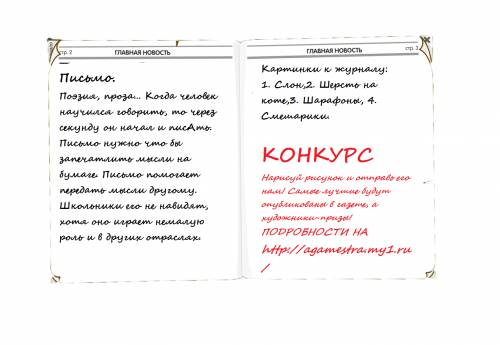 стр. 2
ГЛАВНАЯ НОВОСТЬ
Письмо.
Поэзия, проза... Когда человек
научился говорить, то через
секунду он начал и писАть.
Письмо нужно что бы
запечатлить мысли на
бумаге. Письмо помогает
передать мысли другому.
Школьники его не навидят,
хотя оно играет немалую
роль и в других отраслях.
ГЛАВНАЯ НОВОСТЬ
стр. 3
Картинки к журналу:
1. Слон,2. Шерсть на
коте,3. Шарафоны, 4.
Смешарики.
КОНКУРС
Нарисуй рисунок и отправь его
нам! Самые лучшие будут
опубликованы в газете, а
художники-призы!
ПОДРОБНОСТИ НА
http://agamestra.my1.ru
/